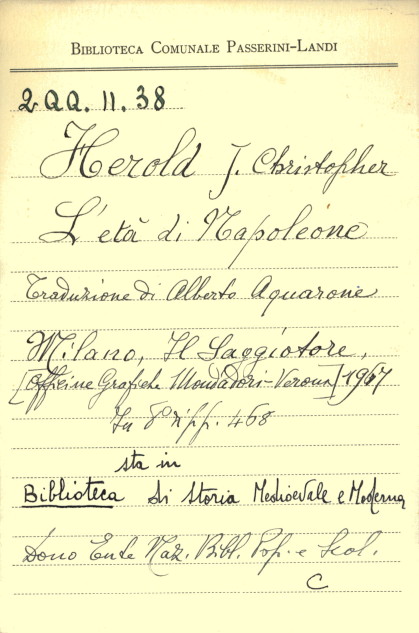 BIBLIOTECA COMUNALE PASSERINI-LANDI
2QQ. 11. 38
Herold J. Christopher
L'età di Napoleone
Traduzione di Alberto Aquarone
Milano, Il Saggiatore,
[Officine Grafiche Mondadori-Verona] 1967
In 8° pp. 468
sta in
Biblioteca di Storia Medioevale e Moderna
Dono Ente Naz. Bibl. Pop. e Scol.
C